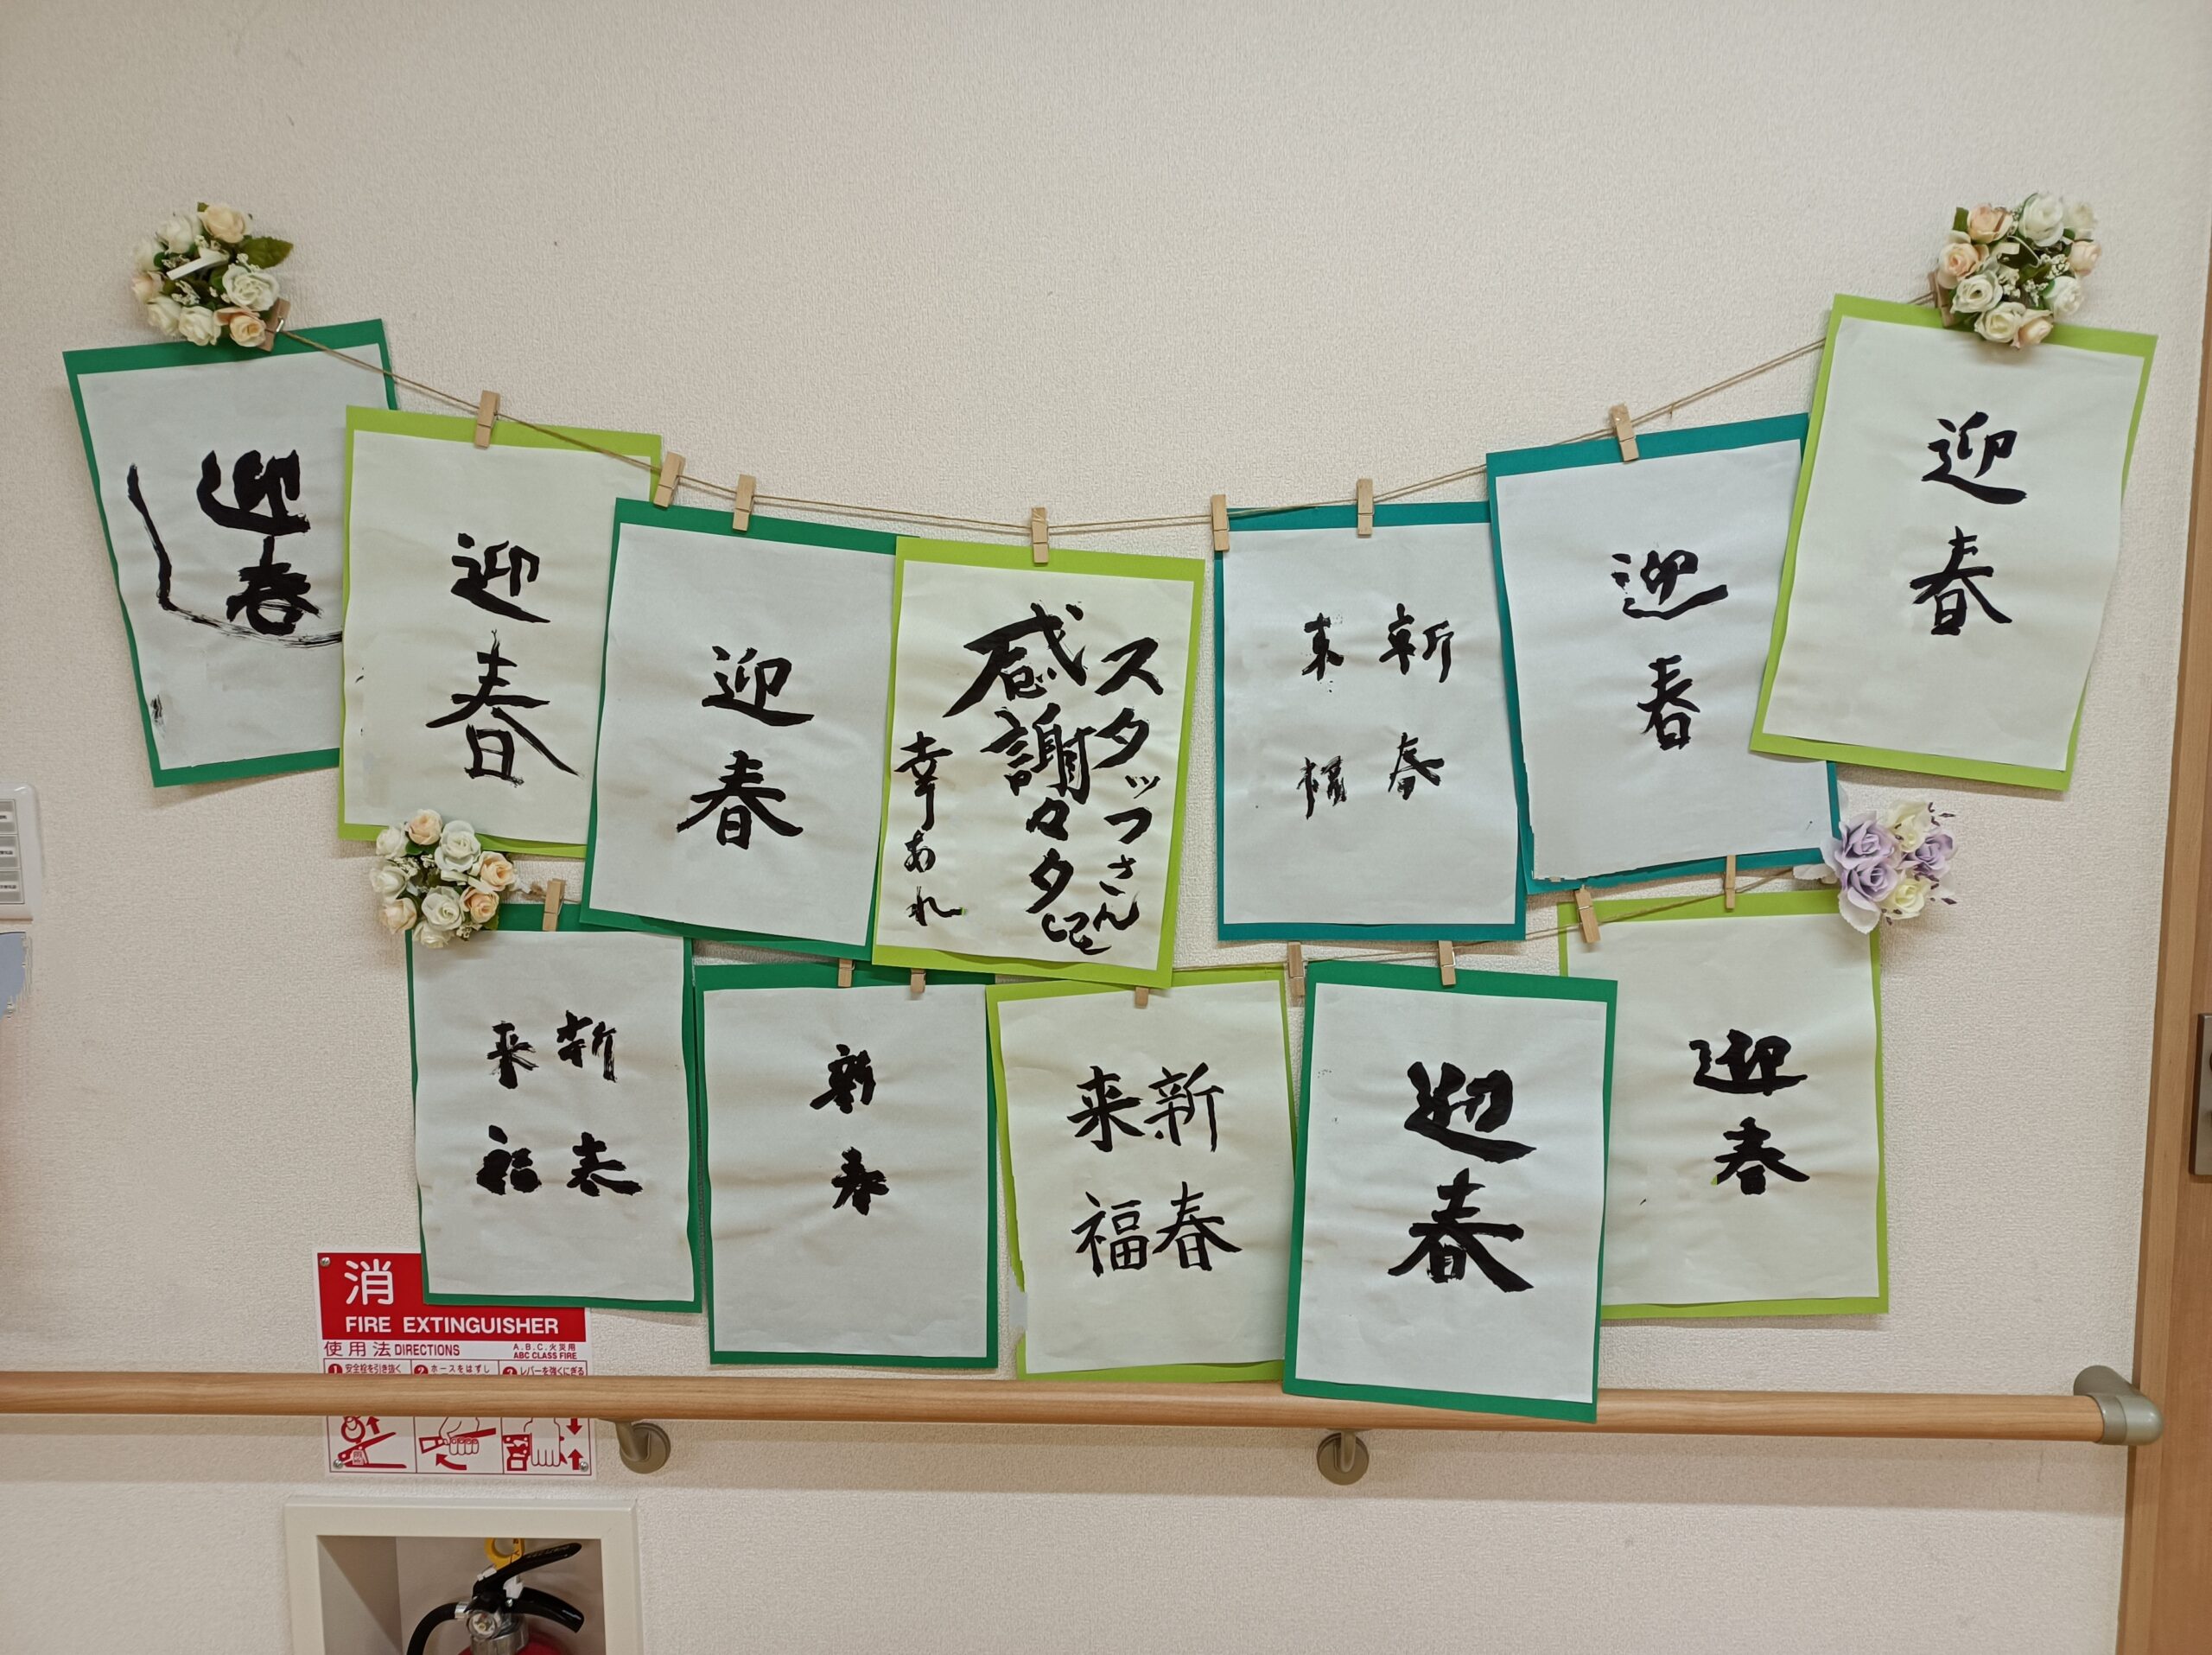 迎春
迎春
迎春
スタッフさん
感謝々々
幸あれ
新春
来福
迎春
迎春
新春
来福
新春
新春
来福
迎春
迎春
消
FIRE EXTINGUISHER
使用法 DIRECTIONS
A.B.C.火災用
ABC CLASS FIRE
1 安全栓を引き抜く
2 ホースをはずし
3 レバーを強くにぎる